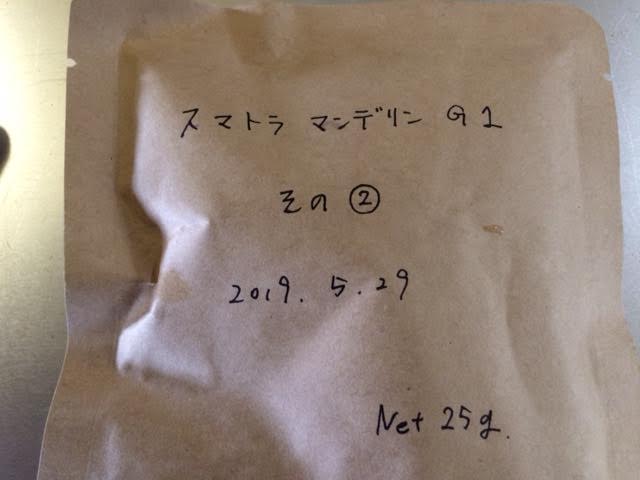 スマトラ マンデリン G1
その ②
2019. 5. 29
Net 25g.